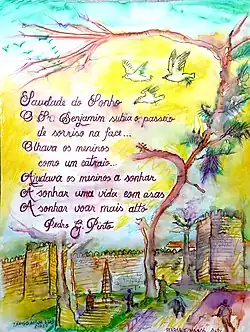 Saudade do Sonho
O Sr. Benjamim subia o passeio
de sorriso na face...
Olhava os meninos
como um catraio...
Ajudava os meninos a sonhar
A sonhar uma vida com asas
A sonhar voar mais alto
Pedro G. Pinto